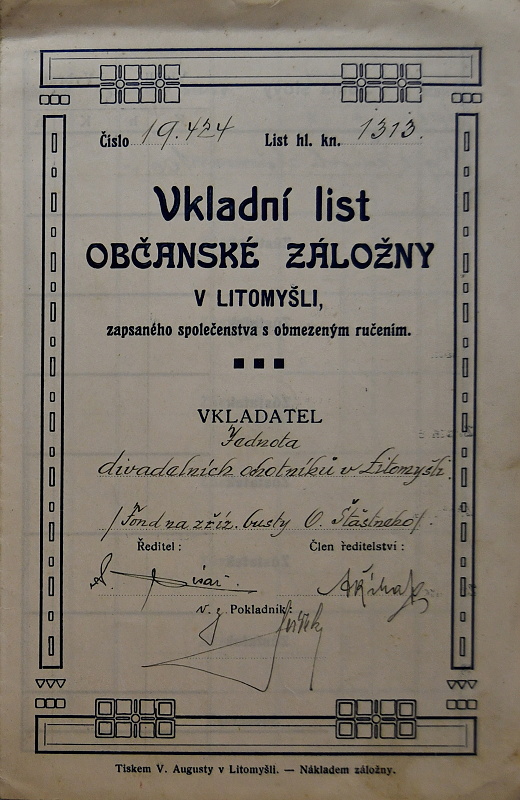 Číslo 19.424 List hl. kn. 1313.
Vkladní list
OBČANSKÉ ZÁLOŽNY
V LITOMYŠLI,
zapsaného společenstva s obmezeným ručením.
VKLADATEL
Jednota
divadelních ochotníků v Litomyšli.
/Fond na zříz. busty O. Šťastného/.
Ředitel: Člen ředitelství:
Pokladník:
Tiskem V. Augusty v Litomyšli. — Nákladem záložny.